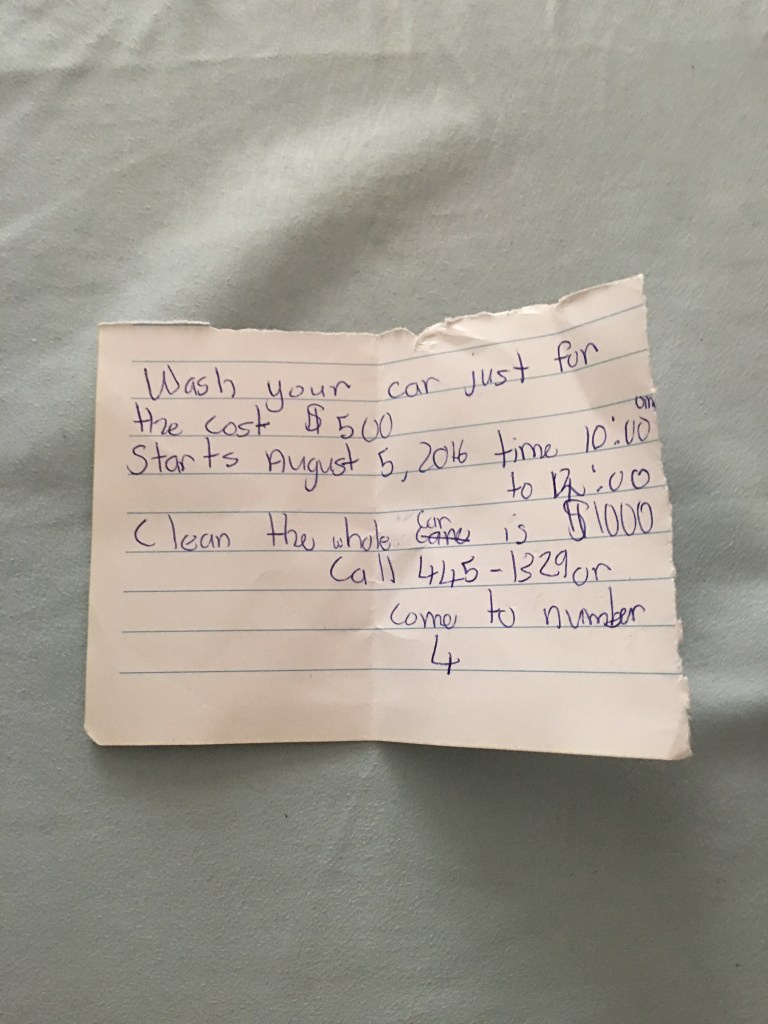 Wash your car just for
the cost $500
Starts August 5, 2016 time 10:00 am
to 12:00
Clean the whole car is $1000
Call 445-1329 or
come to number
4